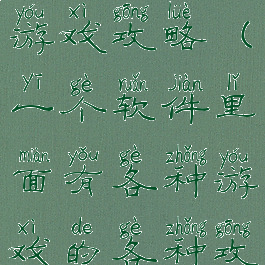 yóu xì gōng lüè
游戏攻略（
yī gè ruǎn jiàn lǐ
一个软件里
miàn yǒu gè zhǒng yóu
面有各种游
xì de gè zhǒng gōng
戏的各种攻